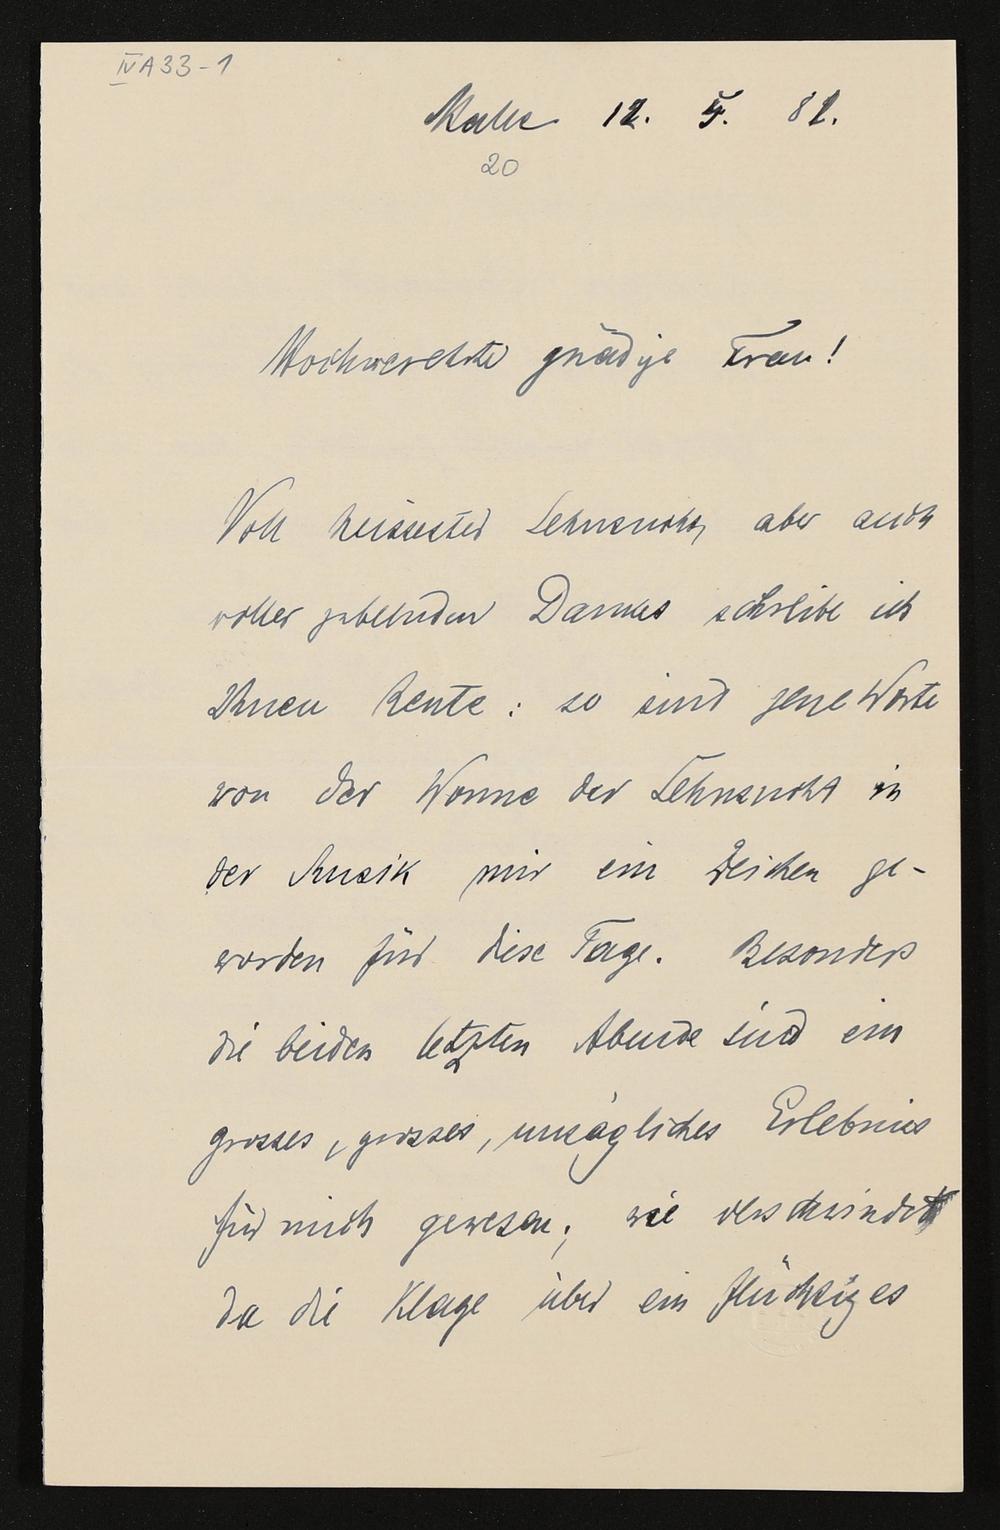 IV A 33-1
Halle 12. 5. 82.
20
Hochverehrte gnädige Frau!
Voll heissester Sehnsucht, aber auch
voller jubelnden Dankes schreibe ich
Ihnen heute: so sind jene Worte
von der Wonne der Sehnsucht in
der Musik mir ein Zeichen ge-
worden für diese Tage. Besonders
die beiden letzten Abende sind ein
grosses, grosses, unsägliches Erlebnis
für mich gewesen; wie verschwindet
da die Klage über ein flüchtiges